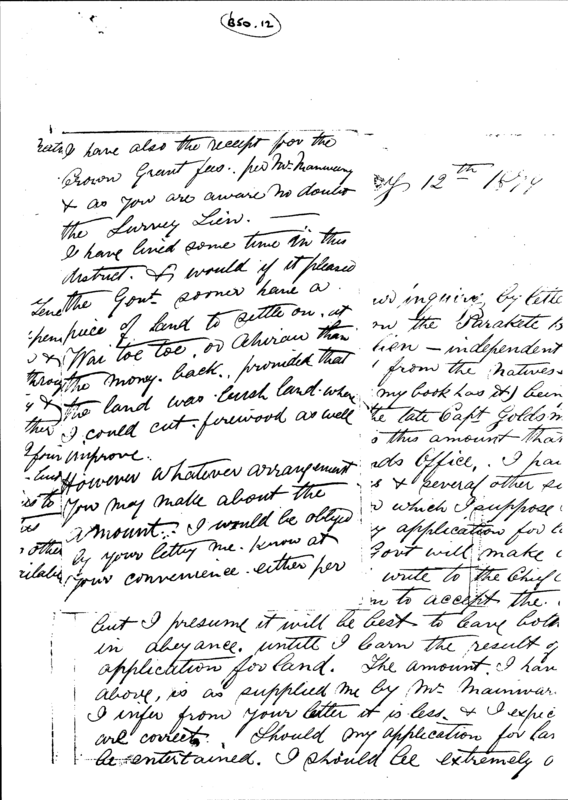 BSO.12
I have also the receipt for the
Crown Grant fees. per Mr Manwaring
& as you are aware no doubt
the Survey Lien. —
I have lived some time in this
district. & would if it pleased
the Govt sooner have a
piece of land to settle on. at
Wai toe toe. or Ahirau than
the money. back. provided that
the land was. bush land. where
I could cut. firewood as well
improve.
However whatever arrangement
you may make about the
amount. I would be obliged
by your letting me. know at
your convenience. either per
12th 1894
inquire, by lette
the Parakete
lien — independent
from the natives
my book has it) been
the late Capt Goldsm
this amount that
Office, I pai
& several other
which I suppose
application for l
Govt will make
write to the Chief
to accept the
but I presume it will be best to leave both
in abeyance. untill I learn the result of
application for land. The amount. I have
above, is as supplied me by Mr. Mainwar
I infer from your letter it is less. & I expec
are correct. Should my application for lan
be entertained. I should be extremely o